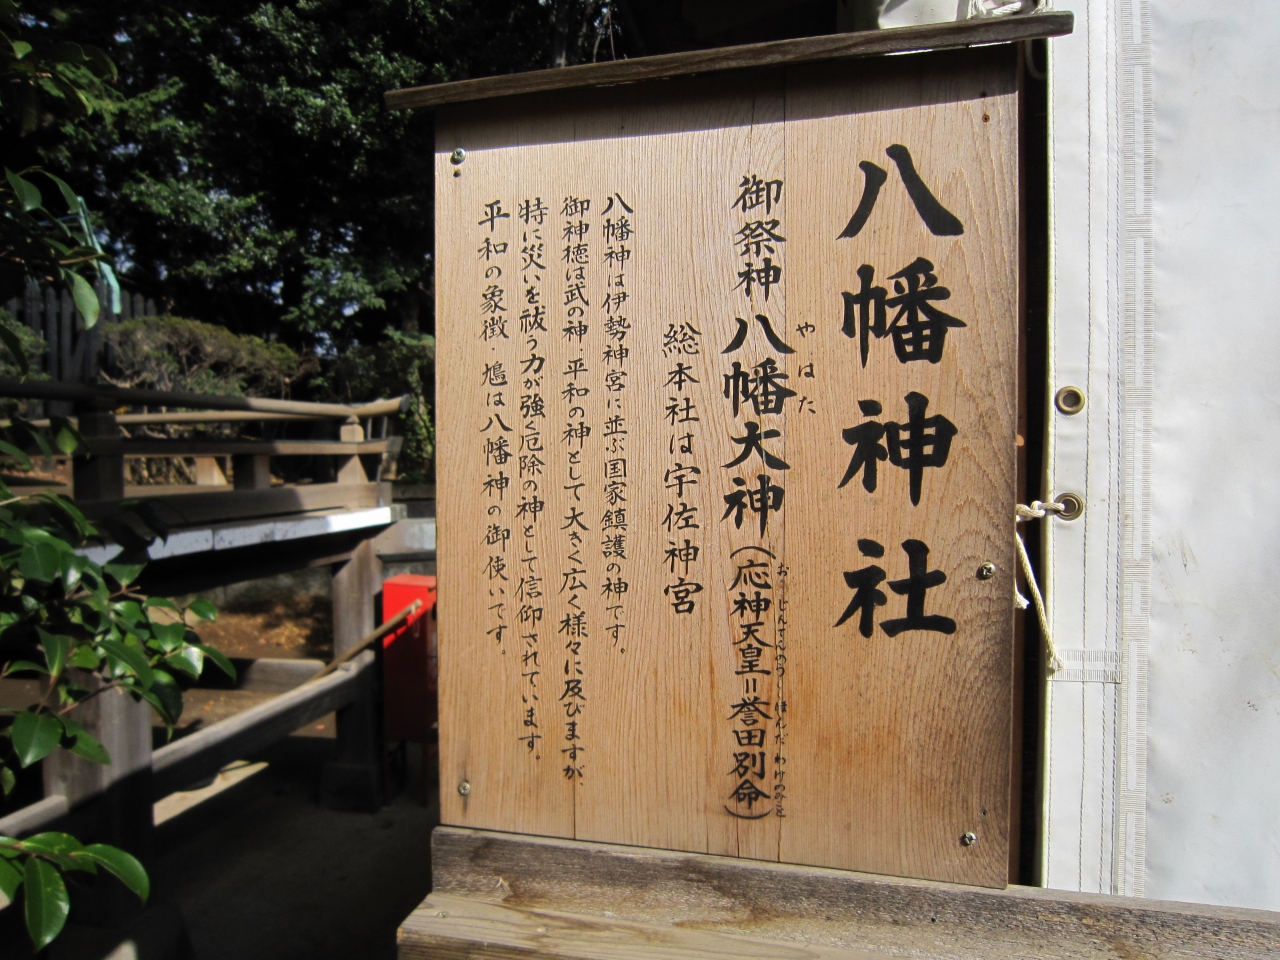 八幡神社
御祭神 八幡大神(応神天皇=誉田別命)
やはた
おうじんてんのう ほんだわけのみこと
総本社は宇佐神宮
八幡神は伊勢神宮に並ぶ国家鎮護の神です。
御神徳は武の神 平和の神として大きく広く様々に及びますが、
特に災いを祓う力が強く厄除の神として信仰されています。
平和の象徴 鳩は八幡神の御使いです。